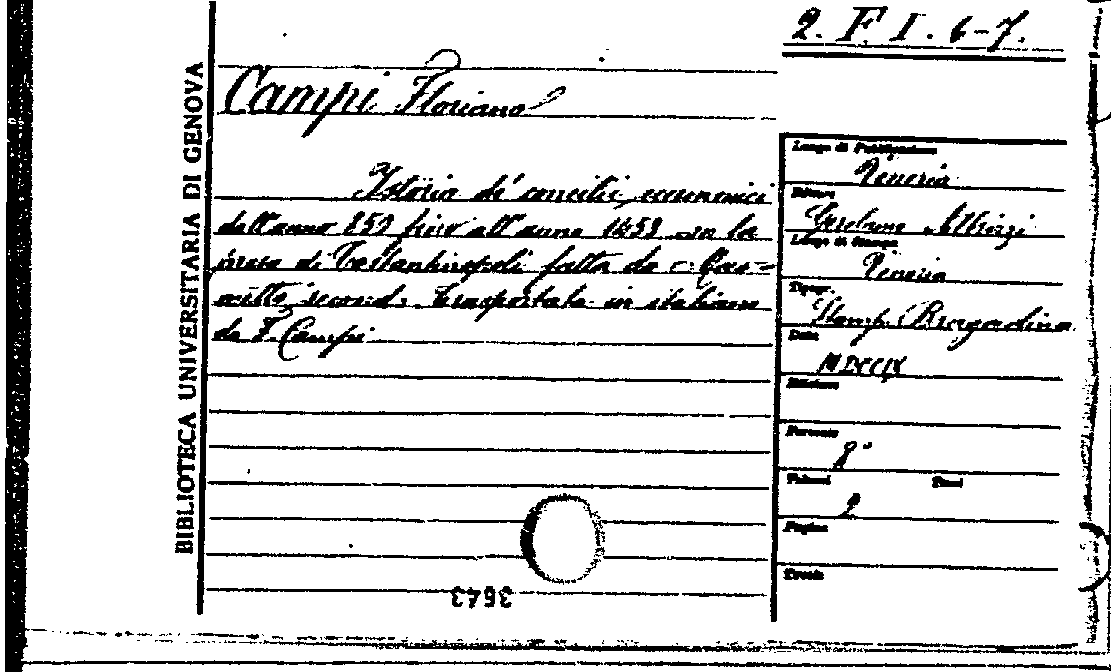 2. F. I. 6-7.
BIBLIOTECA UNIVERSITARIA DI GENOVA
Campi Floriano
Istoria di' concilii ecumenici
dall'anno 859 fino all'anno 1439 la
di Costantinopoli fatta da
secondo. Trasportata in italiano
da F. Campi
Luogo di Pubblicazione
Venezia
Editore
Girolamo Albrizzi
Luogo di Stampa
Venezia
Tipogr.
Stamp. Bragadina
Data
MDCCIX
Edizione
Formato
8°
Volumi Tomi
2
Pagine
Tavole
3643